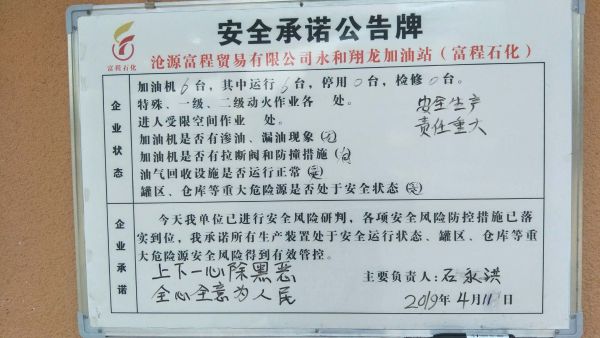 富程石化
安全承诺公告牌
沧源富程贸易有限公司永和翔龙加油站（富程石化）
企业状态
加油机6台，其中运行6台，停用0台，检修0台。
特殊、一级、二级动火作业各 处。
进人受限空间作业 处。
加油机是否有渗油、漏油现象（无）
加油机是否有拉断阀和防撞措施（有）
油气回收设施是否运行正常（是）
罐区、仓库等重大危险源是否处于安全状态（是）
安全生产
责任重大
企业承诺
今天我单位已进行安全风险研判，各项安全风险防控措施已落
实到位，我承诺所有生产装置处于安全运行状态、罐区、仓库等重
大危险源安全风险得到有效管控。
上下一心除黑恶
全心全意为人民
主要负责人：石永洪
2019年4月11日